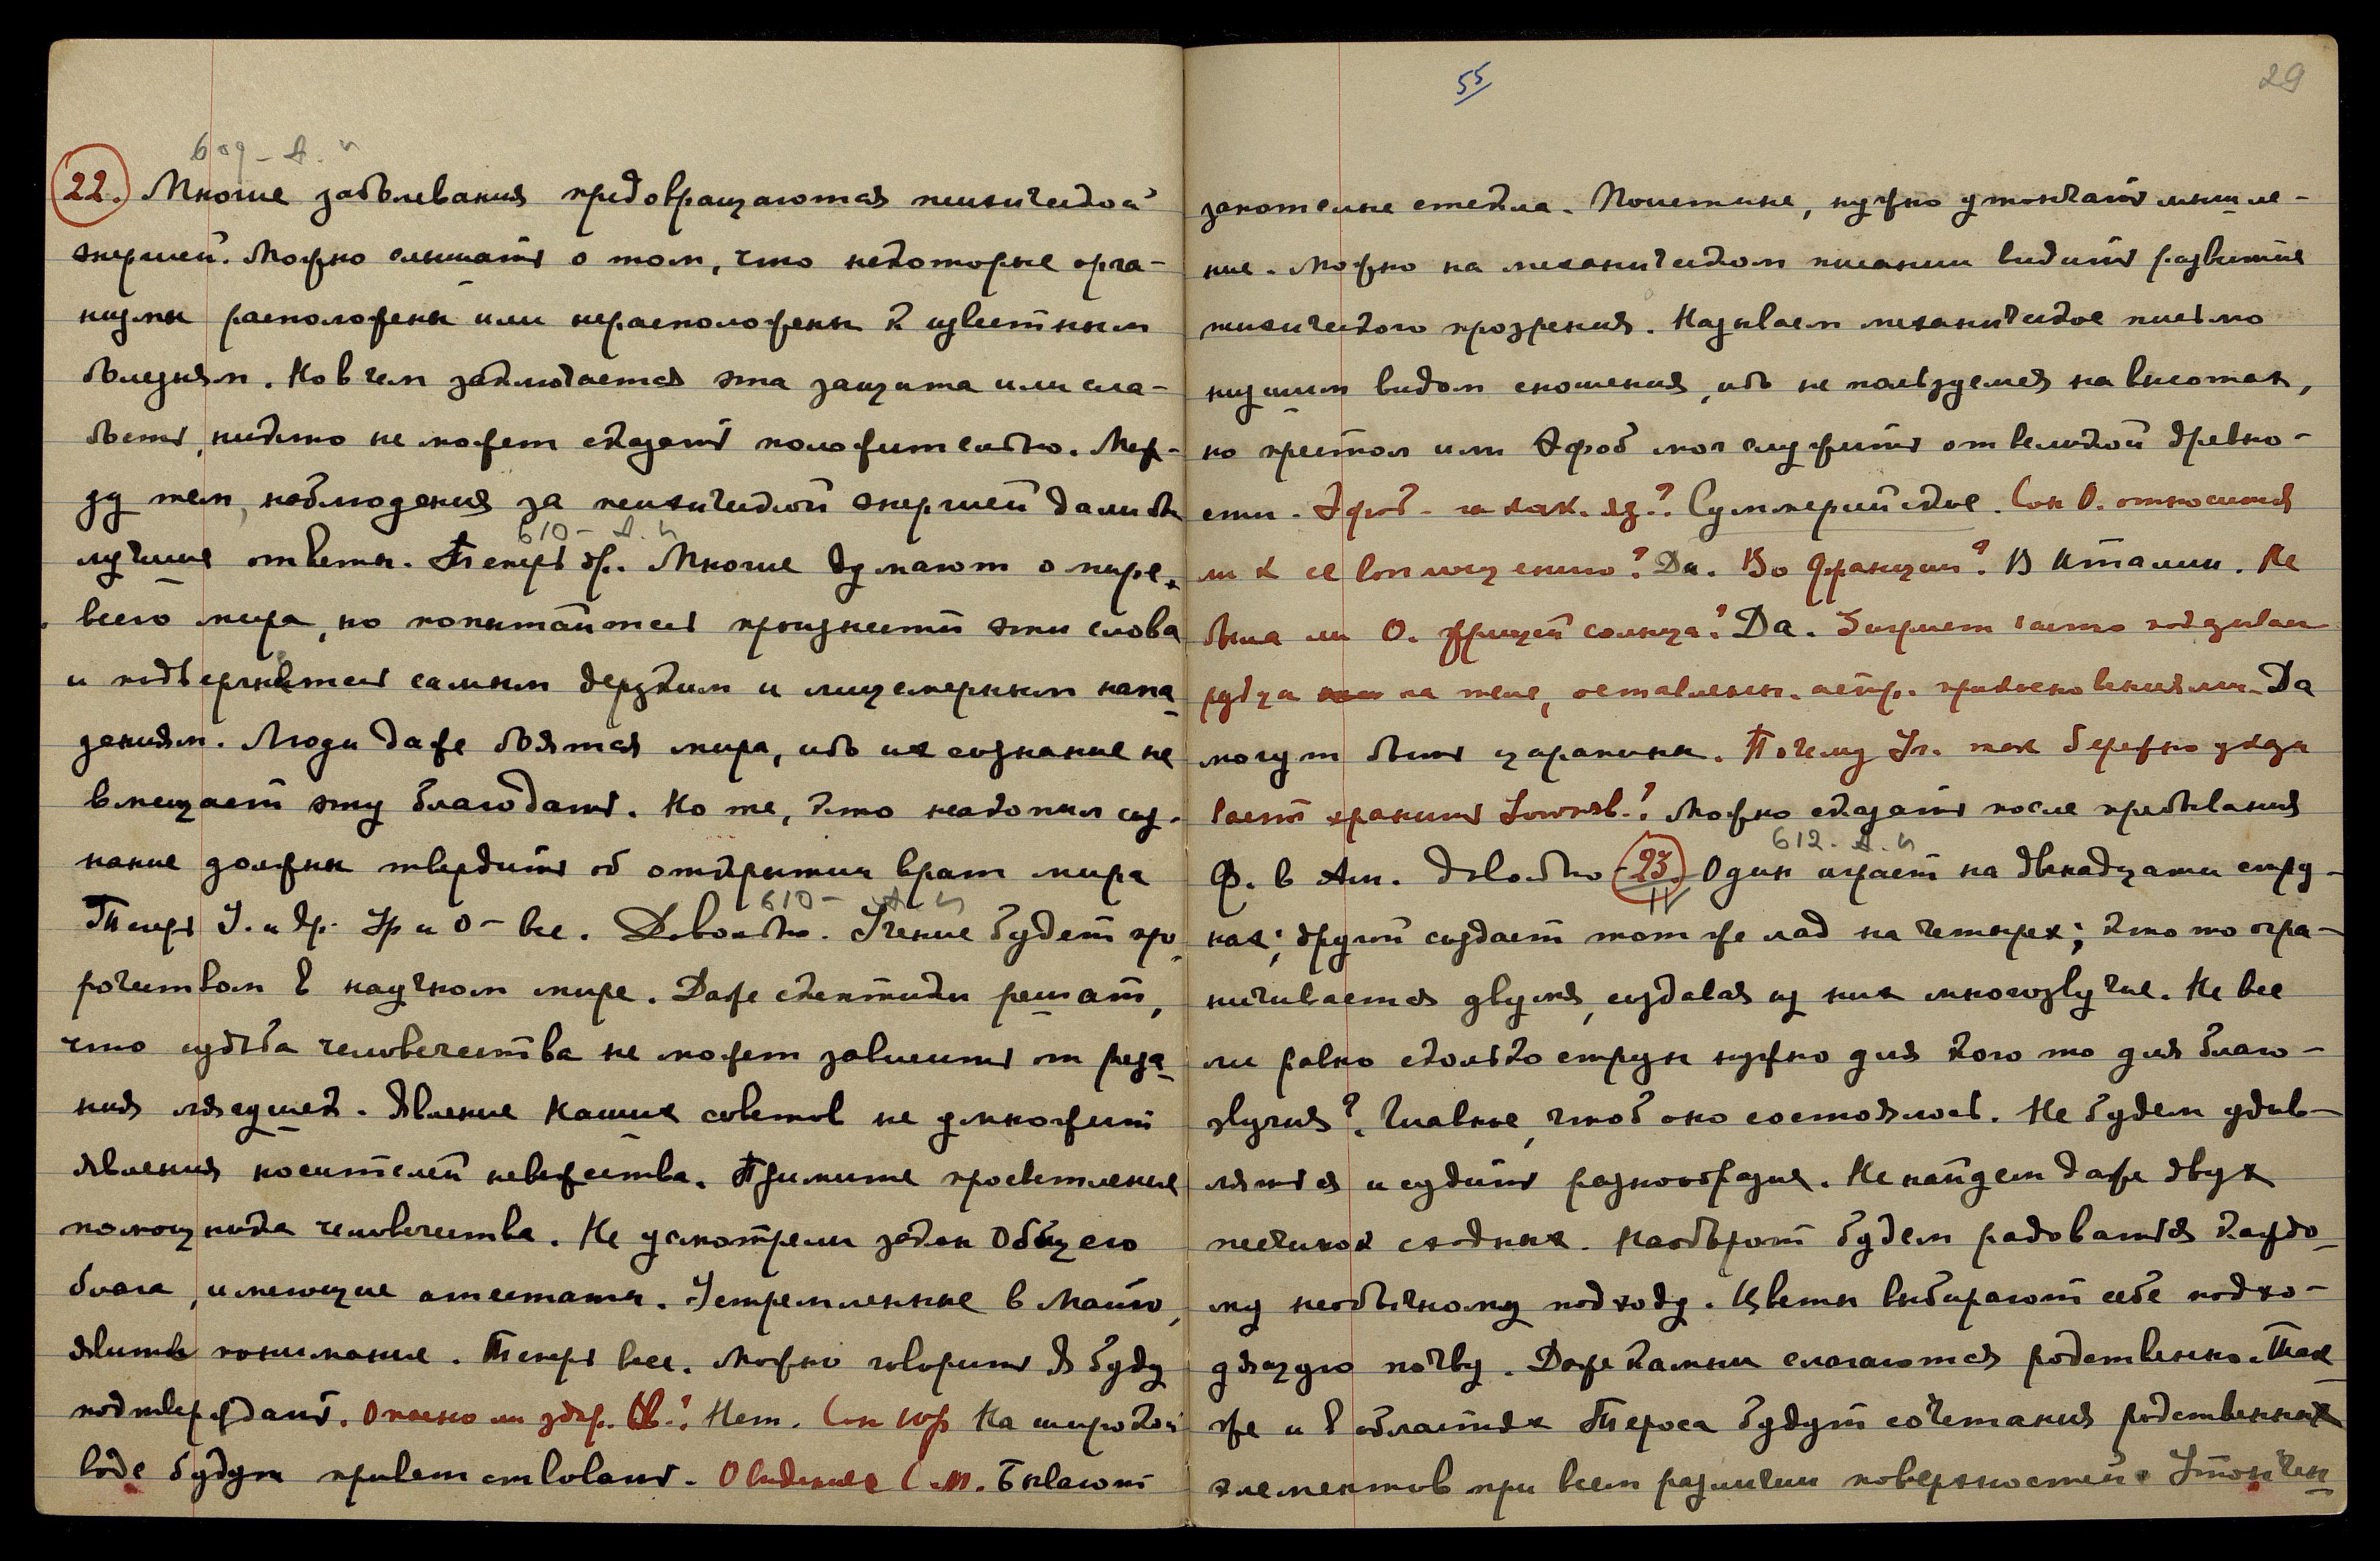 609 - А. Й
22. Многие заболевания предовращаются психической
энергией. Можно слышать о том, что некоторые орга-
низмы расположены или нерасположены к известным
болезням. Но в чем заключается эта защита или сла-
бость, никто не может сказать положительно. Меж-
ду тем, наблюдения за психической энергией дали бы
610 - А. Й
лучшие ответы. Теперь др. Многие думают о мире
всего мира, но попытайтесь произнести эти слова
и подвергнетесь самым дерзким и лицемерным напа
дениям. Люди даже боятся мира, ибо их сознание не
вмещает эту благодать. Но те, кто накопил соз-
нание должны твердить об открытии врат мира
610 - А. Й
Теперь У. и др. Ур и О - все. Довольно. Учение будет про
рочеством в научном мире. Даже скептики решат,
что судьба человечества не может зависить от реза
ния лягушек. Явление Наших советов не умножит
явления носителей невежества. Примите просветление
помощника человечества. Не усмотрели закон Общего
блага, имеющие атестаты. Устремленные в Майю,
явите понимание. Теперь все. Можно говорить Я буду
подтверждать. Опасно ли здор. Св.? Нет. Сон Юр На широкой
воде будут приветствовать. О видениях С.М. Бывают
55
29
закотелые стекла. Поистине, нужно утончать мышле-
ние. Можно на механическом писании видить развитие
психического прозрения. Называем механическое письмо
низшим видом сношения, ибо не пользуемся на высотах,
но престол или Эфоб мог служить от великой древно-
сти. Эфоб - на как. яз.? Суммерийское. Сон О. относится
ли к ее воплощению? Да. Во Франции? В Италии. Не
была ли О. жрицей солнца? Да. Зигрист часто показывает
рубца на теле, оставленн. астр. прикосновениями. Да
могут быть царапины. Почему Уч. так бережно указы
вает хранить? Можно сказать после пребывания
612 - А. Й
Ф. в Ам. Довольно 23. Один играет на двенадцати стру-
нах; другой создает тот же лад на четырех; кто то огра-
ничивается двумя, создавая из них многозвучие. Не все
ли равно сколько струн нужно для кого то для благо-
звучия? Главное, чтоб оно состоялось. Не будем удив-
ляться и судить разнообразие. Не найдем даже двух
песчинок сходных. Наоборот будем радоваться каждо
му необычному подходу. Цветы выбирают себе подхо-
дящую почву. Даже камни слагаются родственно. Так
же и в областях Тероса будут сочетания родственных
элементов при всем различии поверхностей. Утончен